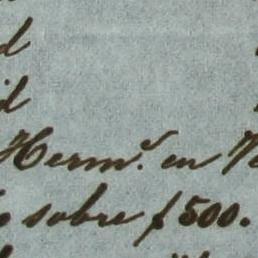 d
d
Hermº. en
sobre f 500.